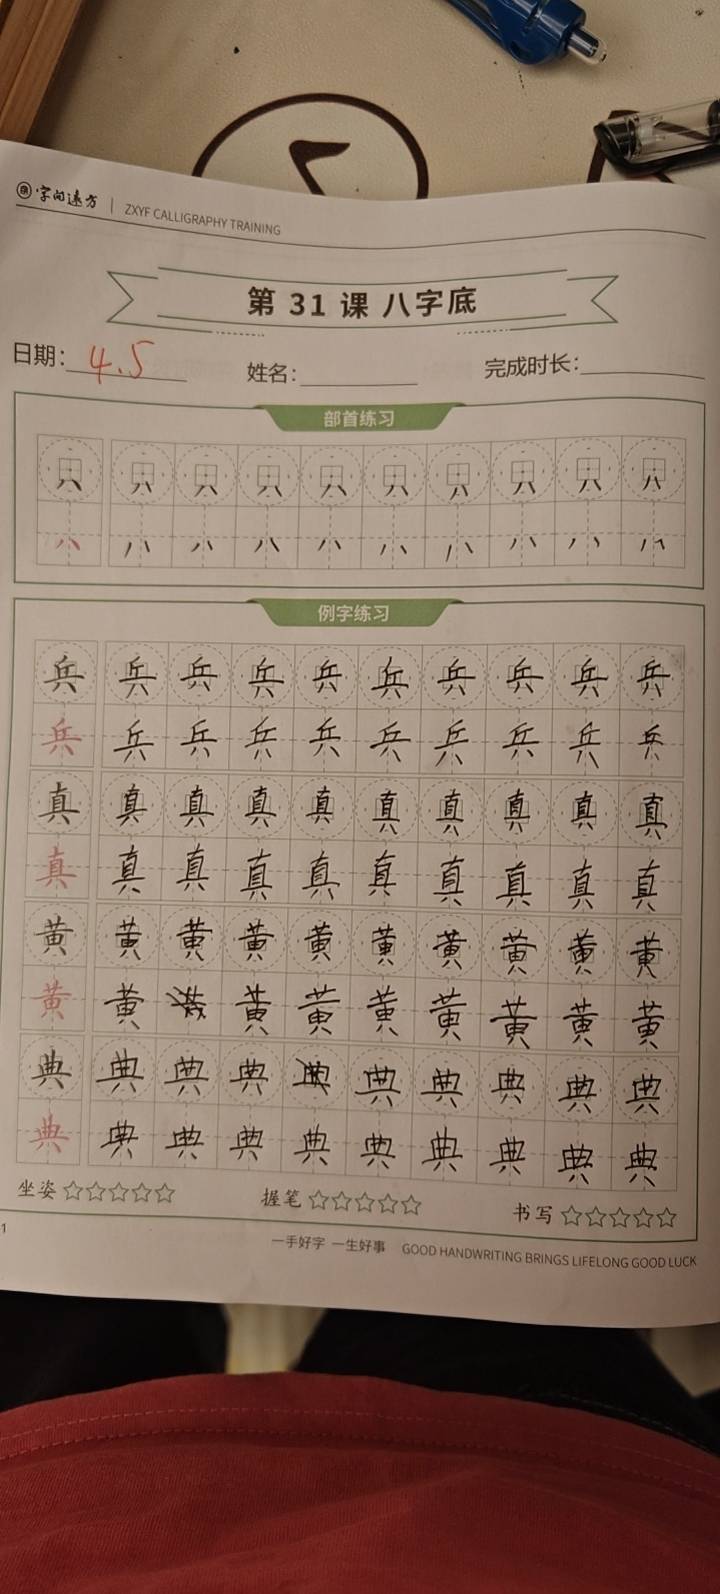 字间远方 | ZXYF CALLIGRAPHY TRAINING
第 31 课 八字底
日期: 4.5 姓名: 完成时长:
部首练习
八 八 八 八 八 八 八 八 八 八
八 八 八 八 八 八 八 八 八 八
例字练习
兵 兵 兵 兵 兵 兵 兵 兵 兵 兵
兵 兵 兵 兵 兵 兵 兵 兵 兵 兵
真 真 真 真 真 真 真 真 真 真
真 真 真 真 真 真 真 真 真 真
黄 黄 黄 黄 黄 黄 黄 黄 黄 黄
黄 黄 黄 黄 黄 黄 黄 黄 黄
典 典 典 典 典 典 典 典 典
典 典 典 典 典 典 典 典 典 典
坐姿 ☆☆☆☆☆ 握笔 ☆☆☆☆☆ 书写 ☆☆☆☆☆
1
一手好字 一生好事 GOOD HANDWRITING BRINGS LIFELONG GOOD LUCK